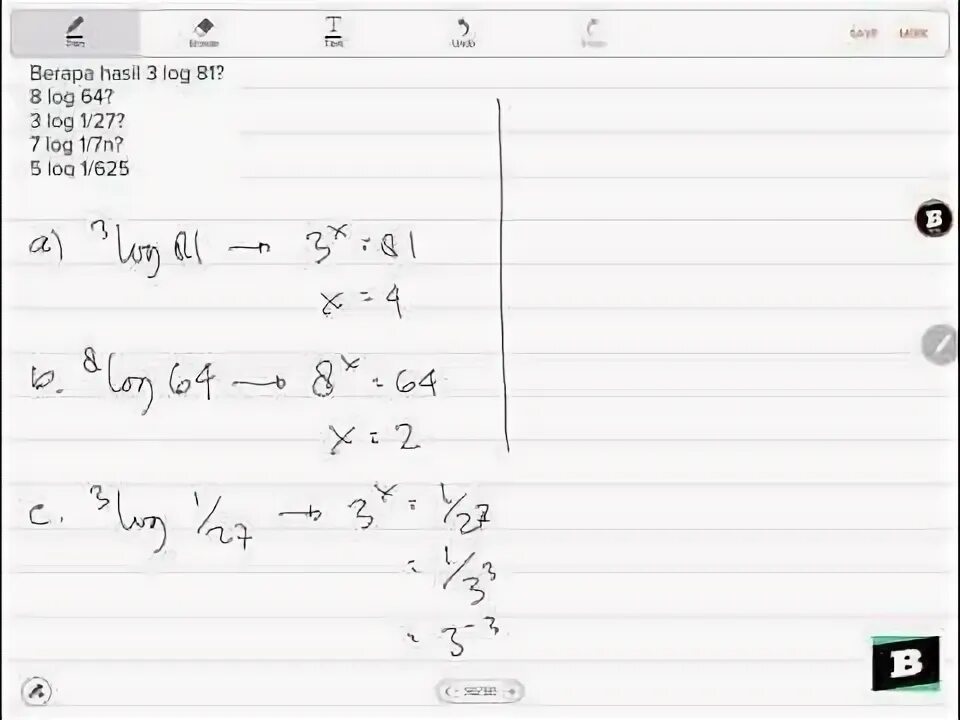 Text
Undo
SAVE
Berapa hasil 3 log 81?
8 log 64?
3 log 1/27?
7 log 1/7n?
5 log 1/625
a) ³log 81 → 3ˣ = 81
x = 4
b. ⁸log 64 → 8ˣ = 64
x = 2
c. ³log 1/27 → 3ˣ = 1/27
= 1/3³
= 3⁻³
B
B